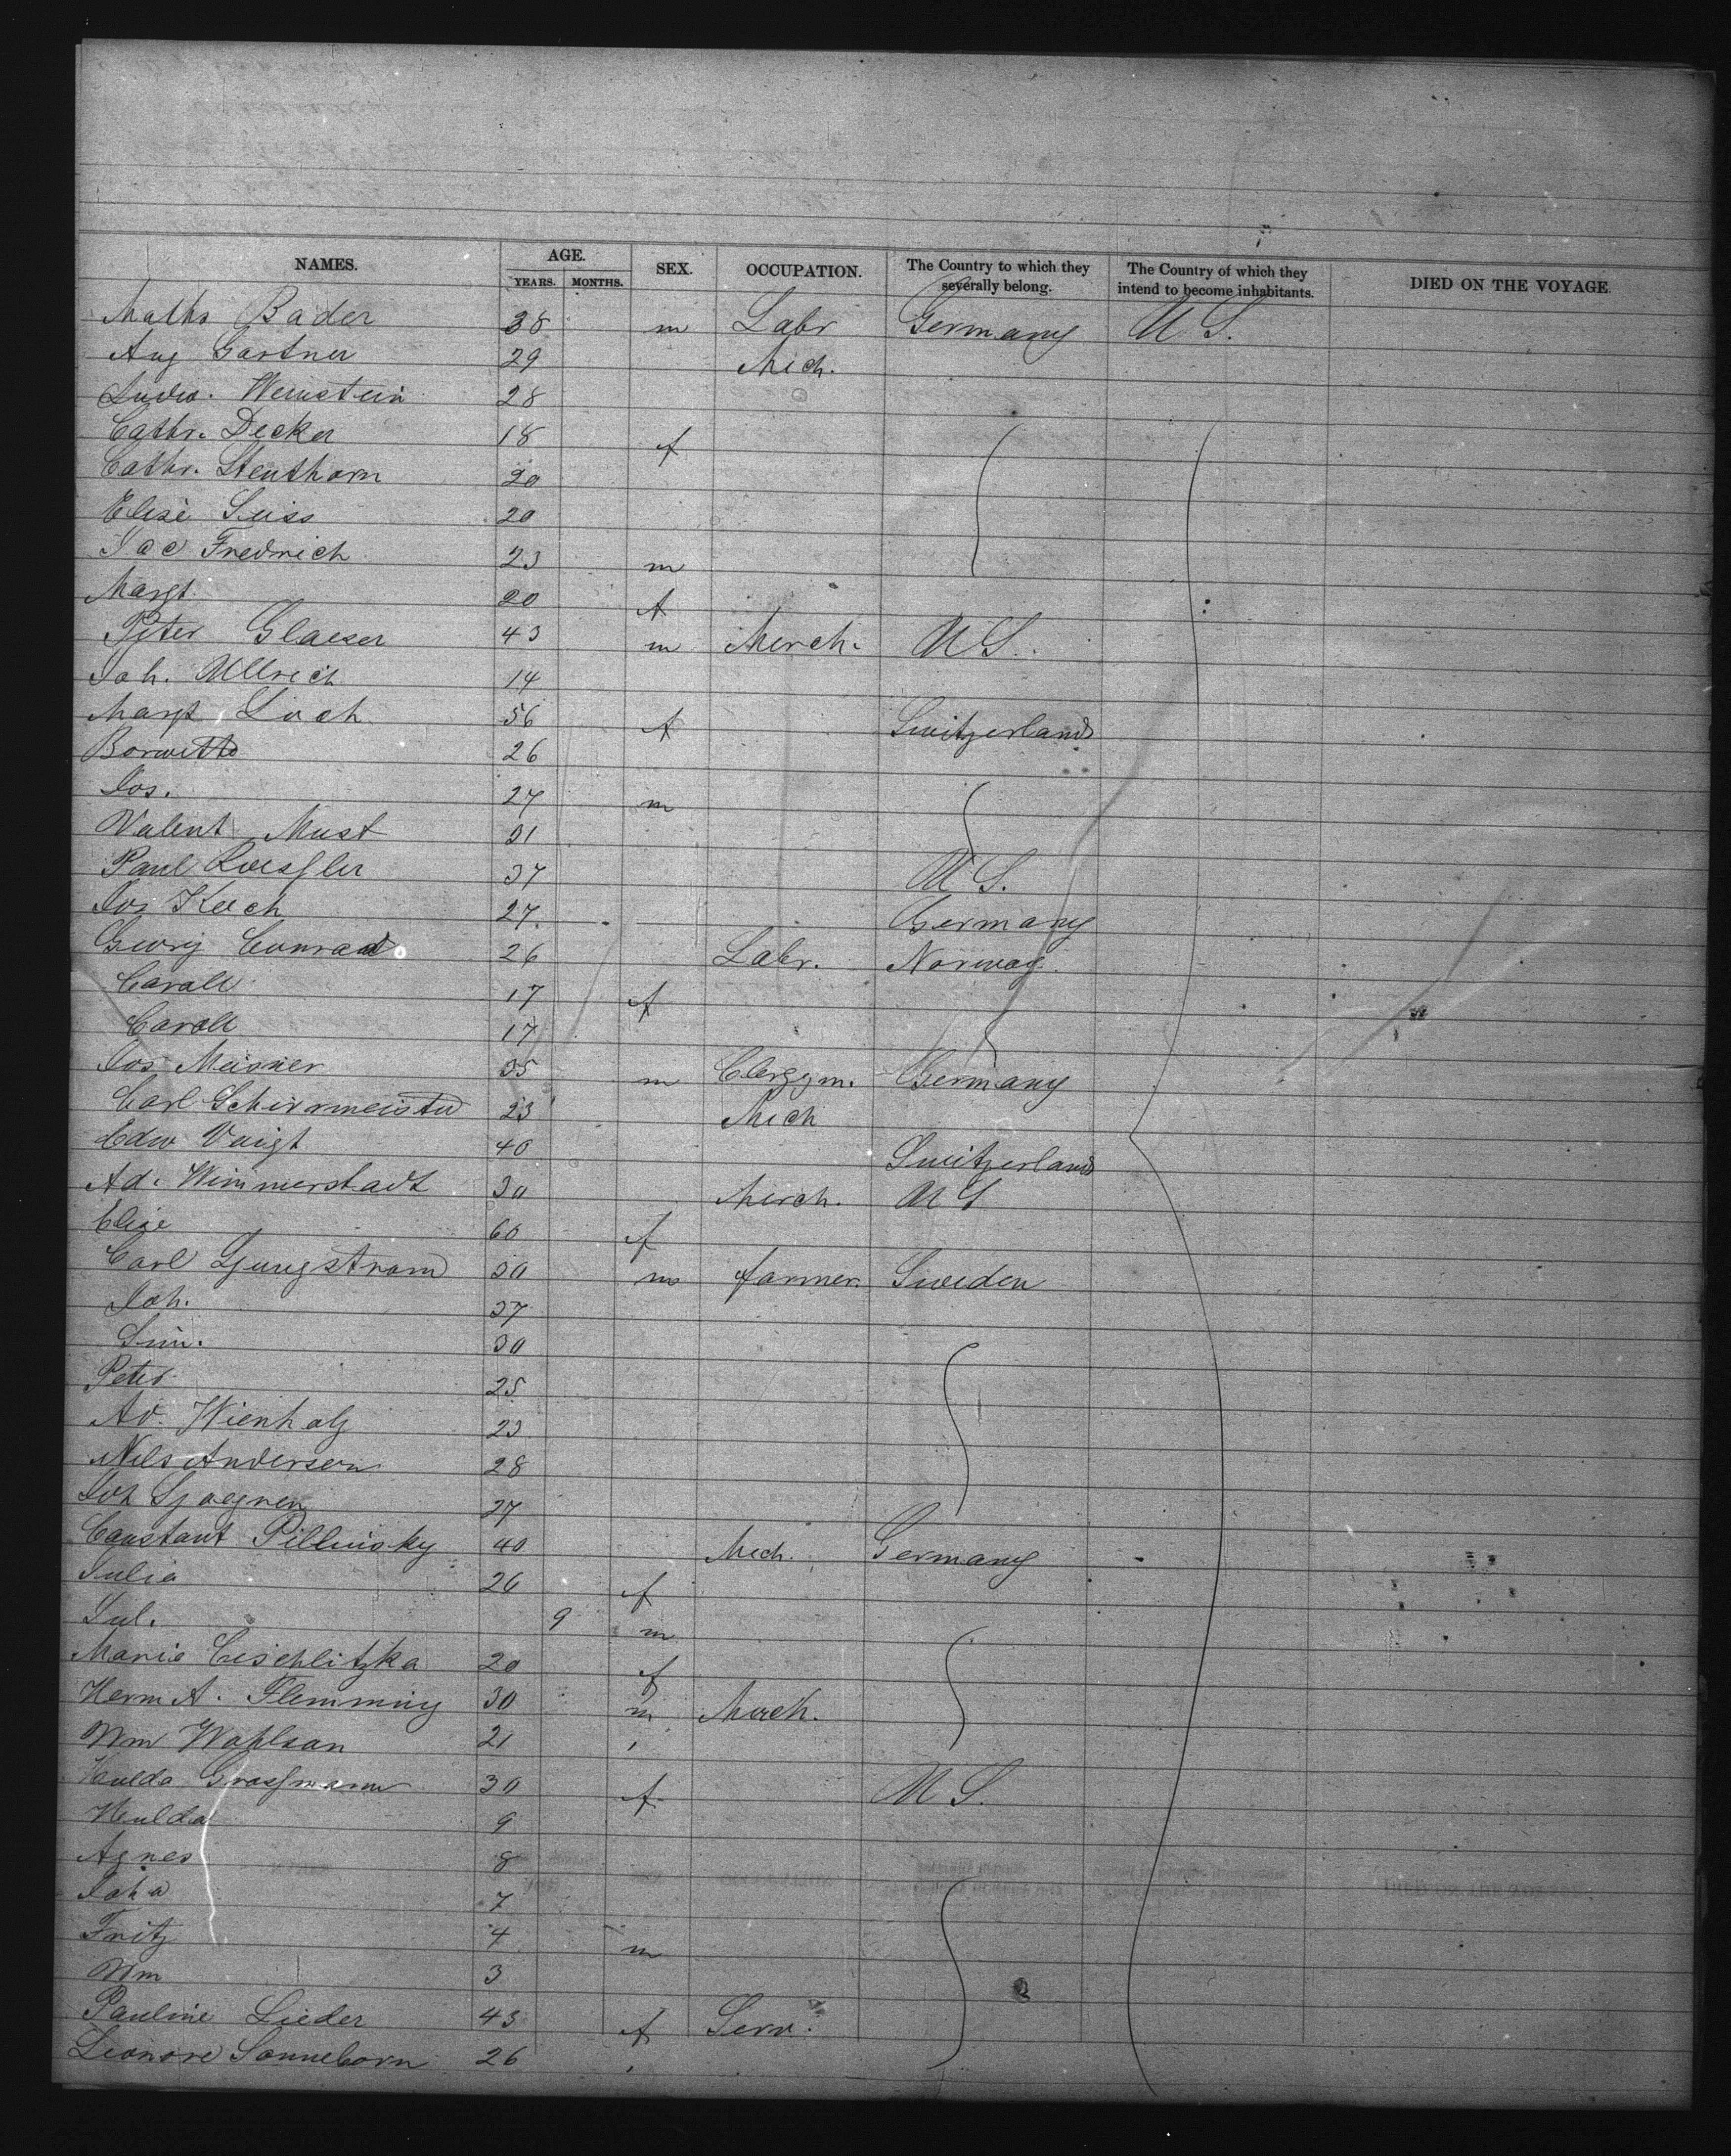 NAMES. AGE. SEX. OCCUPATION. The Country to which they severally belong. The Country of which they intend to become inhabitants. DIED ON THE VOYAGE
YEARS. MONTHS.
Maths Bader 38 m Labr Germany U S.
Aug Gartner 29 Mech.
Ludw. Weinstein 28
Cathr. Decker 18 f
Cathr. Stenthorn 20
Elise Suiss 20
Jac Fredrich 23 m
Margt. 20 f
Peter Glaeser 43 m Merch. U S.
Joh. Ullrich 14
Margt Loch 56 f Switzerland
26
Jos. 27 m
Valent Must 31
Paul Roessler 37 U S.
Jos Koch 27 Germany
Georg Conrad 26 Labr. Norway.
Caroll 17 f
Caroll 17
Jos Meisner 35 m Clergym. Germany
Carl Schirrmeister 23 Mech
Edw Voigt 40 Switzerland
Ad. Wimmerstadt 30 Merch. U S
Elise 60 f
Carl Ljungstrom 30 m farmer Sweden
Joh. 37
Sim. 30
Peter 25
Ad. Wienholz 23
Nels Anderson 28
Joh 27
Constant Pillinsky 40 Mech. Germany
Julia 26 f
Jul. 9 m
Maria 20 f
Herm A. Flemming 30 m Merch.
Wm Wohlson 21 "
Hulda Grossmann 30 f U S.
Hulda 9
Agnes 8
Joha 7
Fritz 4 m
Wm 3
Pauline Lieder 43 f Serv.
Leonore Sonneborn 26 "